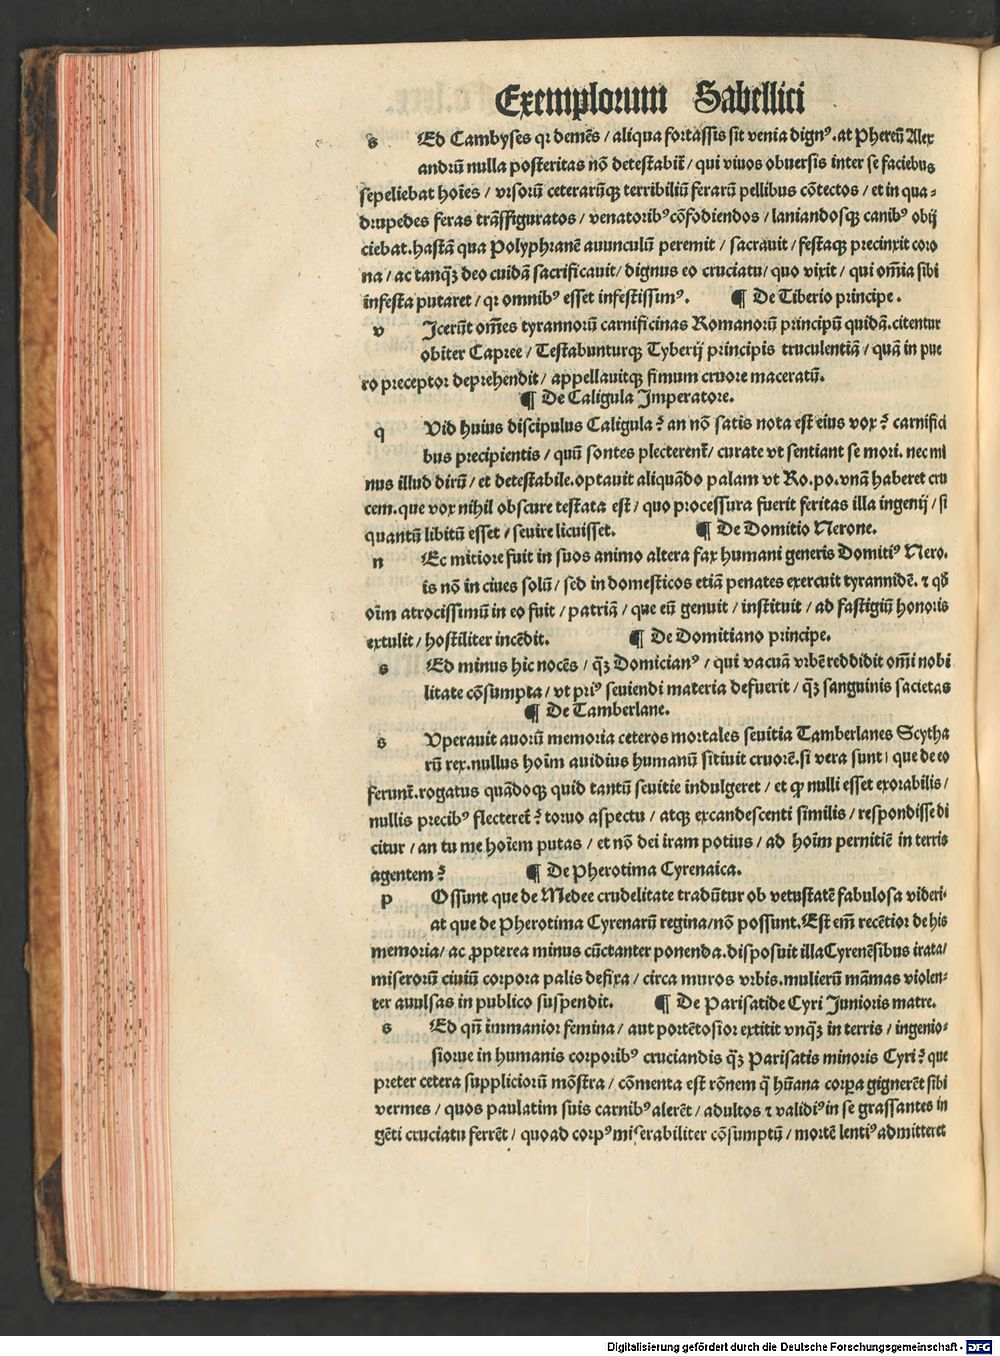 Exemplorum Sabellici
s Ed Cambyses qr demēs / aliqua fortassis sit venia dignꝰ. at Phereū Alex
andrū nulla posteritas nō detestabiť / qui viuos obuersis inter se faciebus
sepeliebat hoīes / vrsorū ceterarūqꝫ terribiliū ferarū pellibus cōtectos / et in qua⸗
drupedes feras trāsfiguratos / venatoribꝰ cōfodiendos / laniandosqꝫ canibꝰ obij
ciebat. hastā qua Polyphranē auunculū peremit / sacrauit / festaqꝫ precinxit coro
na / ac tanqꝫ̄ deo cuidā sacrificauit / dignus eo cruciatu / quo vixit / qui oīa sibi
infesta putaret / qr omnibꝰ esset infestissimꝰ. ¶ De Tiberio principe.
v Icerūt om̄es tyrannorū carnificinas Romanorū principū quidā. citentur
obiter Capree / Testabunturqꝫ Tyberij principis truculentiā / quā in pue
ro preceptor deprehendit / appellauitqꝫ fimum cruore maceratū.
¶ De Caligula Imperatore.
q Vid huius discipulus Caligula? an nō satis nota est eius vox? carnifici
bus precipientis / quū sontes plecterenť / curate vt sentiant se mori. nec mi
nus illud dirū / et detestabile. optauit aliquādo palam vt Ro. po. vnā haberet cru
cem. que vox nihil obscure testata est / quo processura fuerit feritas illa ingenij / si
quantū libitū esset / seuire licuisset. ¶ De Domitio Nerone.
n Ec mitiore fuit in suos animo altera fax humani generis Domitiꝰ Nero.
is nō in ciues solū / sed in domesticos etiā penates exercuit tyrannidē. ⁊ qđ
oīm atrocissimū in eo fuit / patriā / que eū genuit / instituit / ad fastigiū honoris
extulit / hostiliter incēdit. ¶ De Domitiano principe.
s Ed minus hic nocēs / qꝫ̄ Domicianꝰ / qui vacuā vrbē reddidit om̄i nobi
litate cōsumpta / vt priꝰ seuiendi materia defuerit / qꝫ̄ sanguinis sacietas
¶ De Tamberlane.
s Vperauit auorū memoria ceteros mortales seuitia Tamberlanes Scytha
rū rex. nullus hoīm auidius humanū sitiuit cruorē. si vera sunt / que de eo
ferunť. rogatus quādoqꝫ quid tantū seuitie indulgeret / et ꝙ nulli esset exorabilis /
nullis precibꝰ flectereť? toruo aspectu / atqꝫ excandescenti similis / respondisse di
citur / an tu me hoīem putas / et nō dei iram potius / ad hoīm pernitiē in terris
agentem? ¶ De Pherotima Cyrenaica.
p Ossunt que de Medee crudelitate tradūtur ob vetustatē fabulosa videri.
at que de Pherotima Cyrenarū regina / nō possunt. Est em̄ recētior de his
memoria / ac ꝓpterea minus cūctanter ponenda. disposuit illa Cyrenēsibus irata /
miserorū ciuiū corpora palis defixa / circa muros vrbis. mulierū māmas violen⸗
ter auulsas in publico suspendit. ¶ De Parisatide Cyri Junioris matre.
s Ed qn̄ immanior femina / aut portētosior extitit vnqꝫ̄ in terris / ingenio⸗
siorue in humanis corporibꝰ cruciandis qꝫ̄ Parisatis minoris Cyri? que
preter cetera suppliciorū mōstra / cōmenta est rōnem q̄ hūana corpa gignerēt sibi
vermes / quos paulatim suis carnibꝰ alerēt / adultos ⁊ validiꝰ in se grassantes in
gēti cruciatu ferrēt / quoad corpꝰ miserabiliter cōsumptū / mortē lentiꝰ admitteret
Digitalisierung gefördert durch die Deutsche Forschungsgemeinschaft - DFG